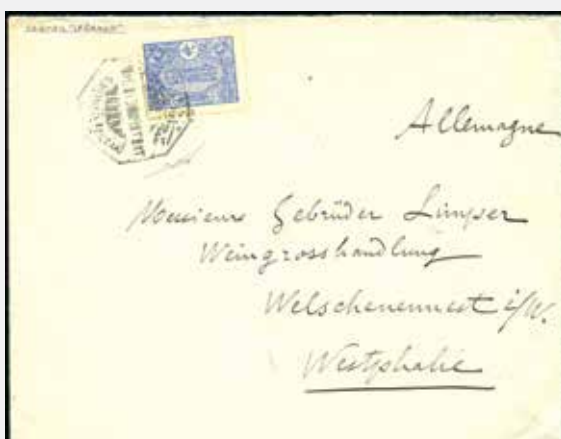 Allemagne
Monsieur Gebrüder Limper
Weingrosshandlung
Welschenennest i/W.
Westphalie